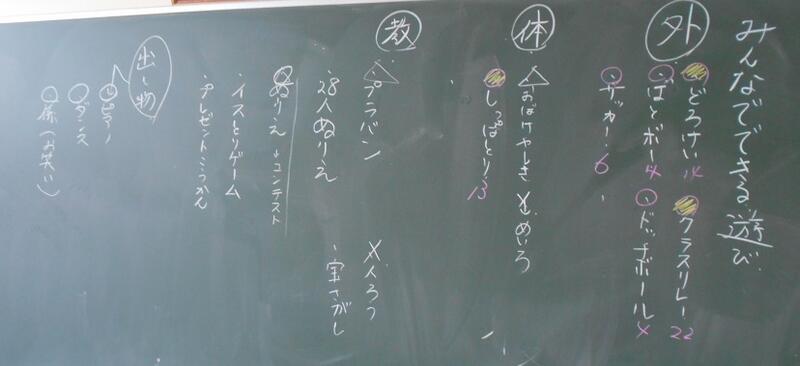 みんなでできる遊び
外
・どろけい 14
・クラスリレー 22
・ばとボー 4
・ドッチボール
・サッカー・6
体
おばけやしき
めいろ
・しっぽとり 13
教
・プラバン
・人ろう
・28人ぬりえ
・宝さがし
ぬりえ→コンテスト
・イスとりゲーム
・プレゼントこうかん
出し物
ピアノ
ダンス
係(お笑い)